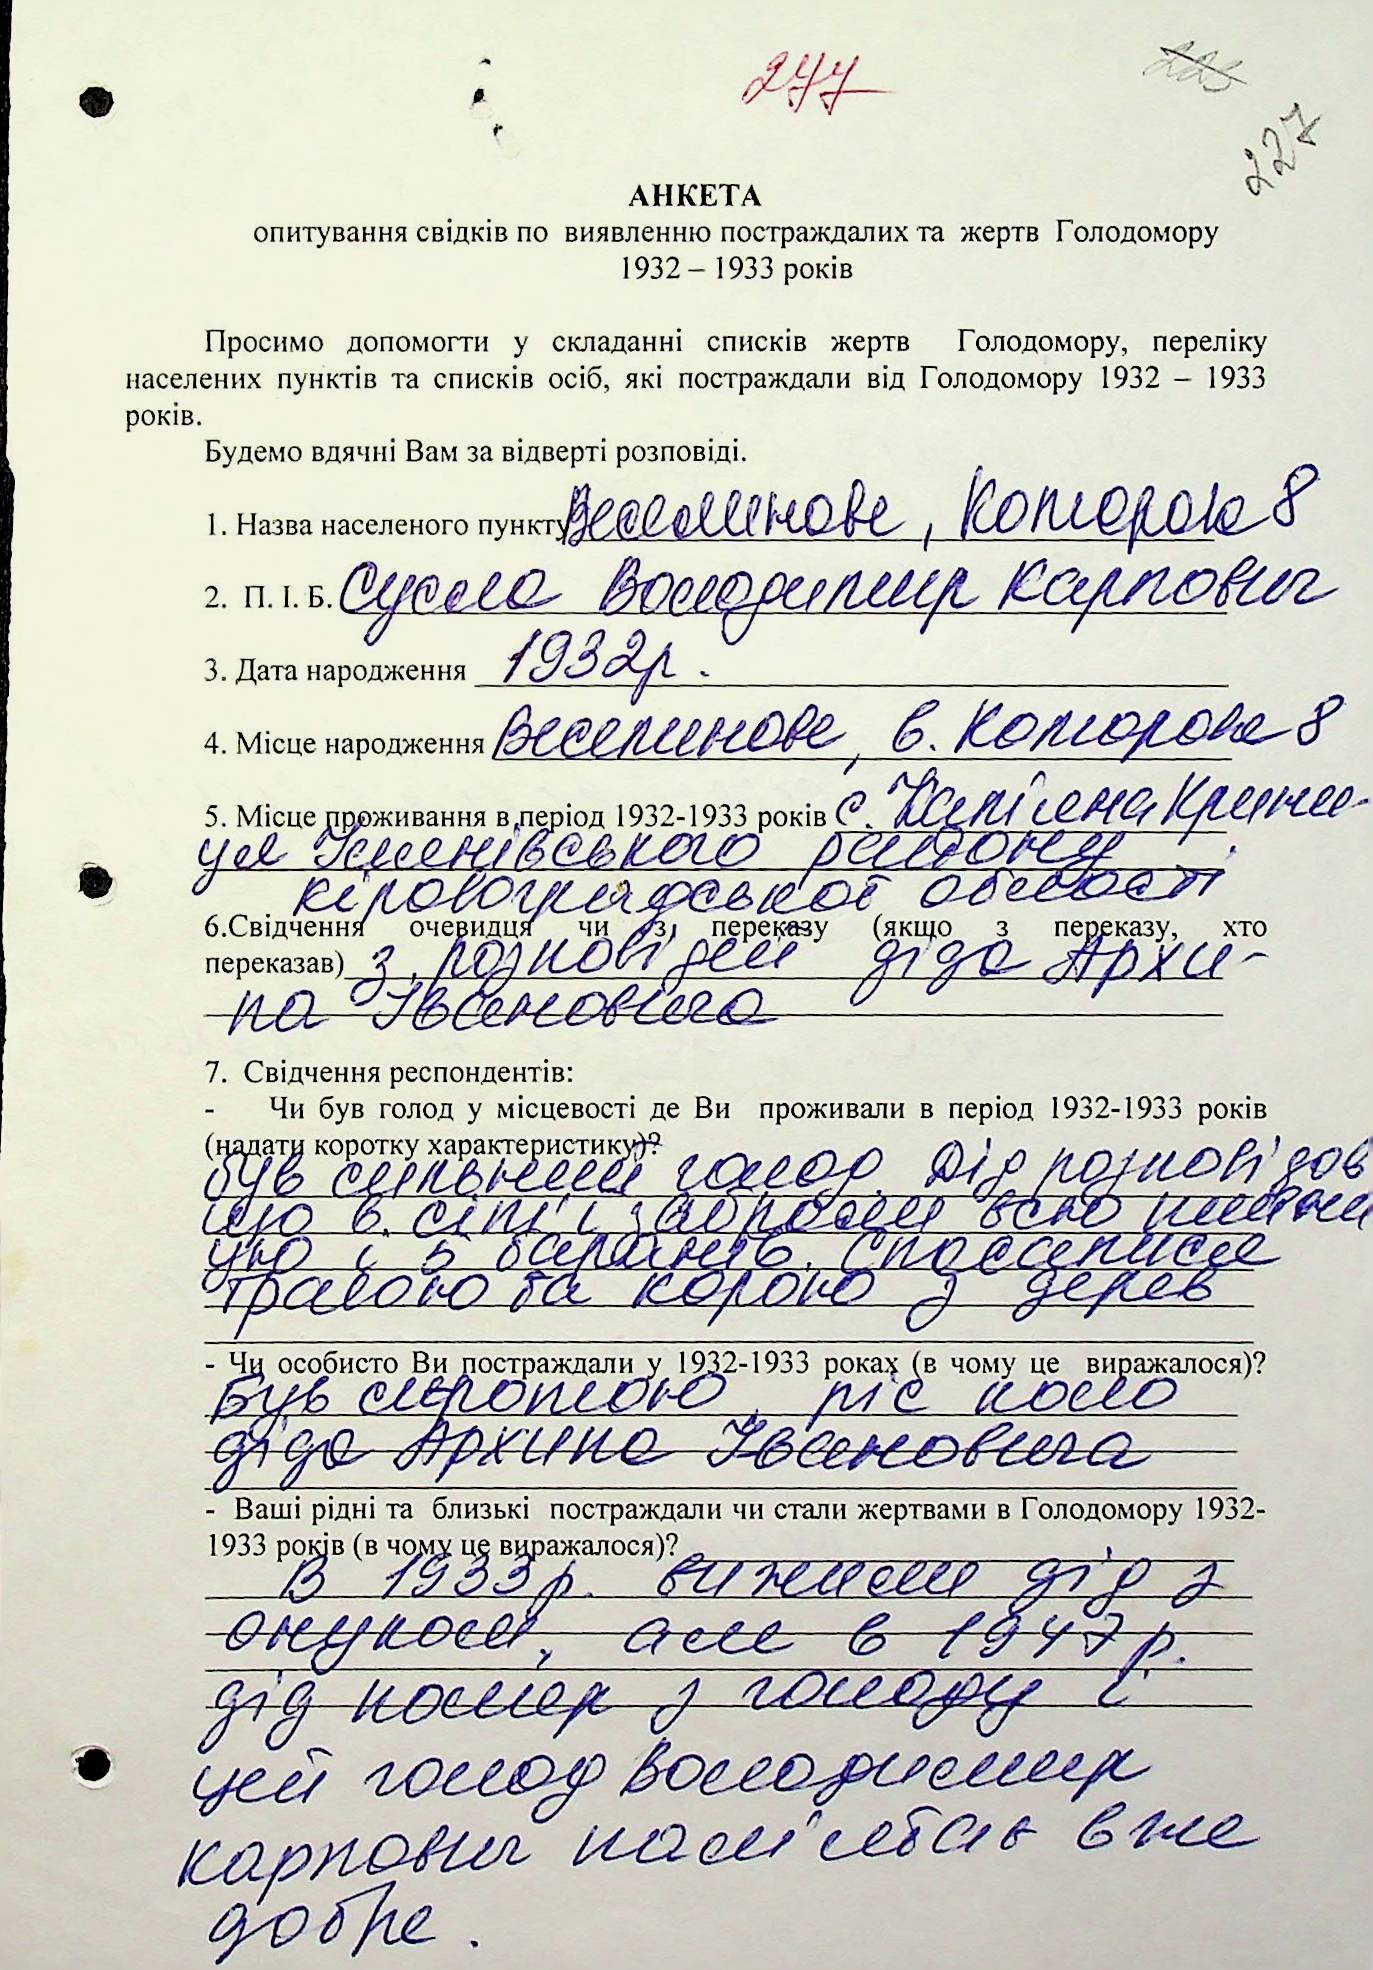 277
225
227
АНКЕТА
опитування свідків по виявленню постраждалих та жертв Голодомору
1932 – 1933 років
Просимо допомогти у складанні списків жертв Голодомору, переліку
населених пунктів та списків осіб, які постраждали від Голодомору 1932 – 1933
років.
Будемо вдячні Вам за відверті розповіді.
1. Назва населеного пункту Веселинове, Которова 8
2. П. І. Б. Сусла Володимир Карпович
3. Дата народження 1932р.
4. Місце народження Веселинове, в. Которова 8
5. Місце проживання в період 1932-1933 років с. Кам'яна Крини-
ця Ульянівського району
кіровоградської області
6.Свідчення очевидця чи з переказу (якщо з переказу, хто
переказав) з розповідей діда Архи-
па Івановича
7. Свідчення респондентів:
- Чи був голод у місцевості де Ви проживали в період 1932-1933 років
(надати коротку характеристику)?
був сильний голод. Дід розповідав
що в. сім'ї забрали всю пшени
цю і 5 баранів. Спасалися
травою та корою з дерев
- Чи особисто Ви постраждали у 1932-1933 роках (в чому це виражалося)?
Був сиротою, ріс коло
діда Архипа Івановича
- Ваші рідні та близькі постраждали чи стали жертвами в Голодомору 1932-
1933 років (в чому це виражалося)?
В 1933р. вижили дід з
онуком, але в 1947р.
дід помер з голоду і
цей голод Володимир
Карпович пам'ятає вже
добре.